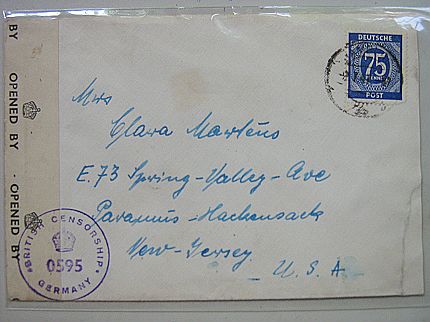 BY
OPENED BY
OPENED BY
DEUTSCHE
75
PFENNIG
POST
Mrs
Clara Martens
E. 73 Spring-Valley-Ave
Paramus-Hackensack
New-Jersey.
U. S. A.
BRITISH CENSORSHIP
0595
GERMANY